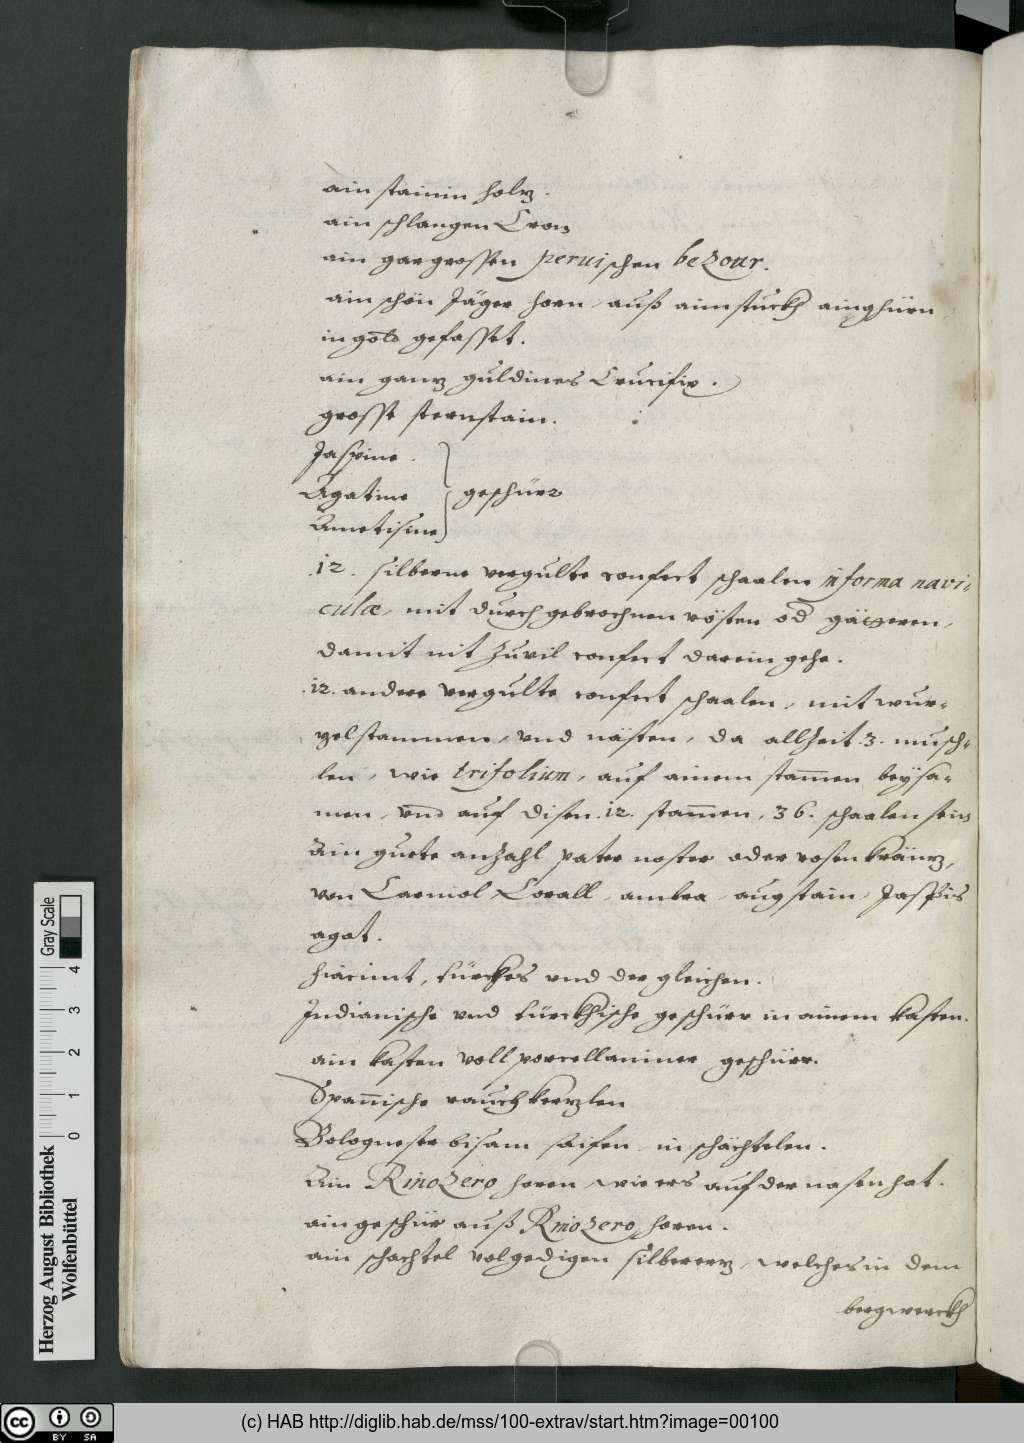 ain stainin holz.
ain schlangen Cron
ain gar grossen peruischen bezoar.
ain schön Jäger horn, auß aim stuckh ainghürn
in gold gefasset.
ain ganz guldines Crucifix.
grosse sternstain.
Jaspine.
Agatine } geschürr
Ametisine
.12. silberne vergulte confect schaalen in forma navi-
culæ, mit durchgebrochnen rösten od gätteren,
damit nit zuvil confect darein gehe.
.12. andere vergulte confect schaalen, mit wur-
zelstammen, vnd nästen, da allzeit .3. musch-
len, wie trifolium, auf ainem stammen beysa-
men, vnd auf disen .12. stammen, 36. schaalen sein
Ain guete anzahl pater noster oder rosenkränz,
von Carniol, Corall, ambra, augstain, Jaspis
agat.
hiacint, türckes vnd der gleichen.
Indianische vnd türckhische geschürr in ainem kasten.
ain kasten voll porcellaniner geschürr.
Spannische rauchkerzlen
Bologneser bisam saifen, in schächtelen.
Ain Rinozero horen, wie ers auf der nasen hat.
ain geschür auß Rinozero horen.
ain schachtel vol gedigen silbererz, welches in dem
bergwerckh
Herzog August Bibliothek
Wolfenbüttel
Gray Scale
0 1 2 3 4
cc BY SA
(c) HAB http://diglib.hab.de/mss/100-extrav/start.htm?image=00100